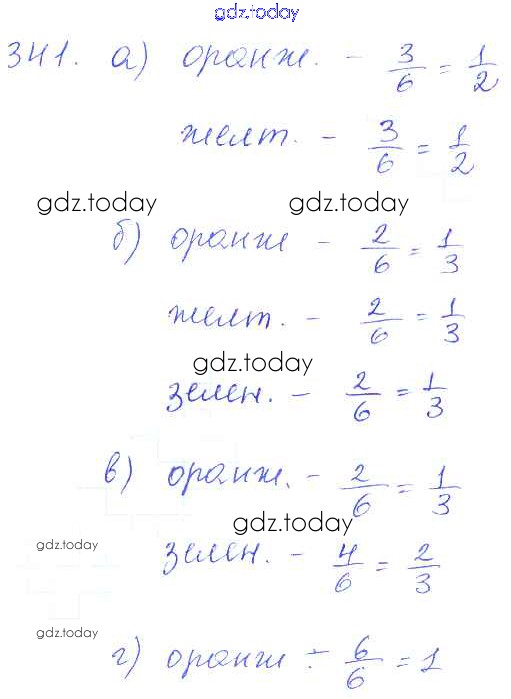 gdz.today
341. а) оранж. - 3/6 = 1/2
желт. - 3/6 = 1/2
gdz.today gdz.today
б) оранж - 2/6 = 1/3
желт. - 2/6 = 1/3
gdz.today
зелен. - 2/6 = 1/3
в) оранж. - 2/6 = 1/3
gdz.today
gdz.today
зелен. - 4/6 = 2/3
gdz.today
г) оранж - 6/6 = 1